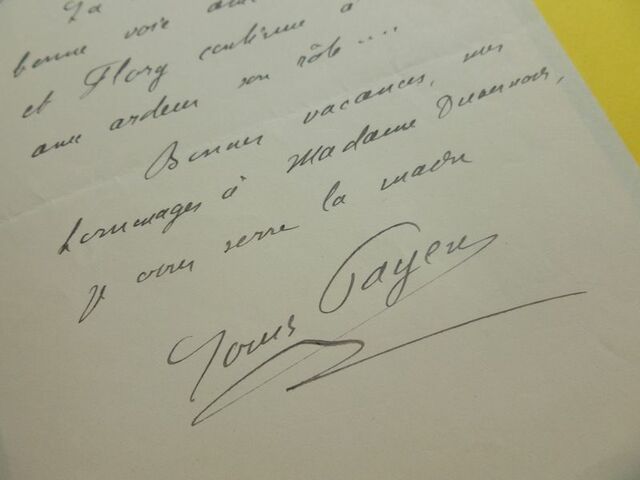 bonne voie
et Flory continue à
avec ardeur son rôle....
Bonnes vacances, mes
hommages à Madame
je vous serre la main
Louis Payen